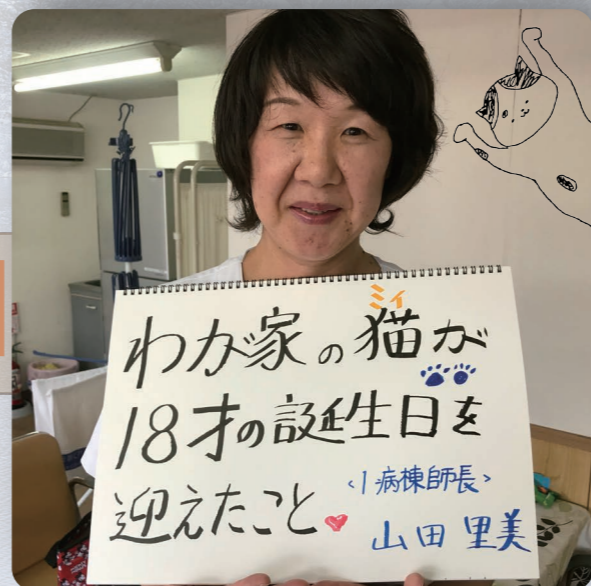 ミィ
わが家の猫が
18才の誕生日を
迎えたこと
<1病棟師長>
山田 里美